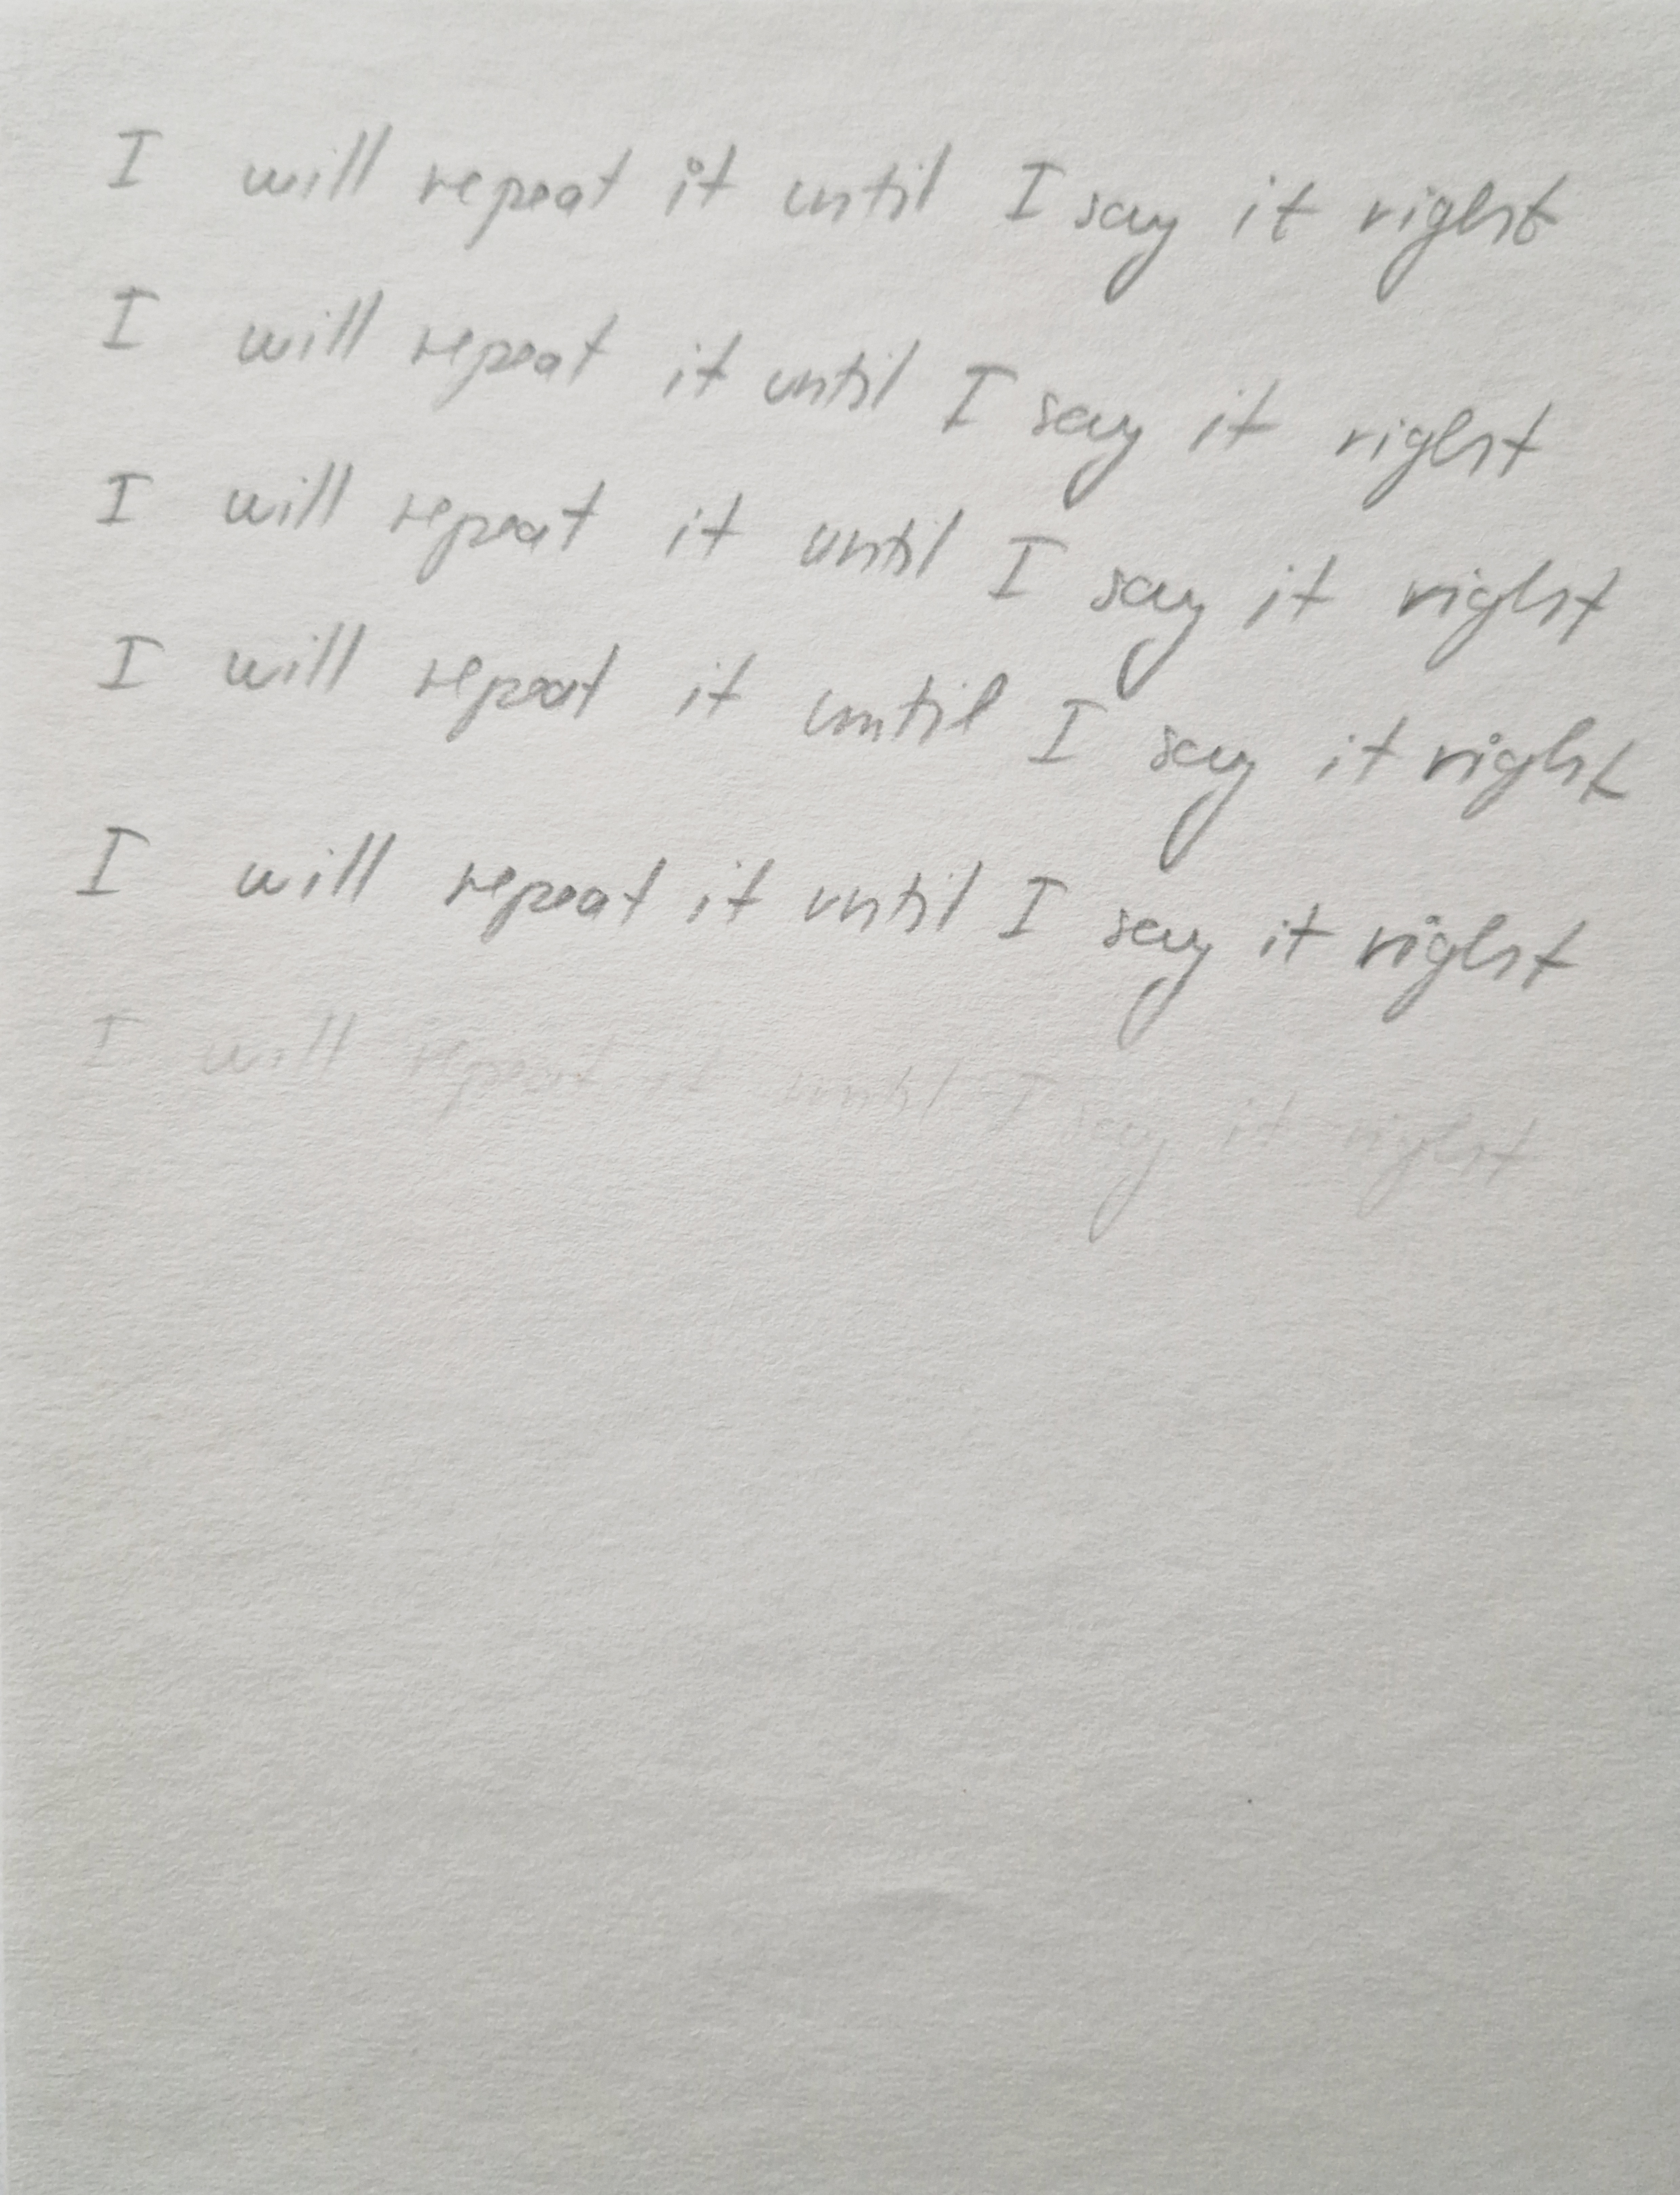 I will repeat it until I say it right
I will repeat it until I say it right
I will repeat it until I say it right
I will repeat it until I say it right
I will repeat it until I say it right
I will repeat it until I say it right